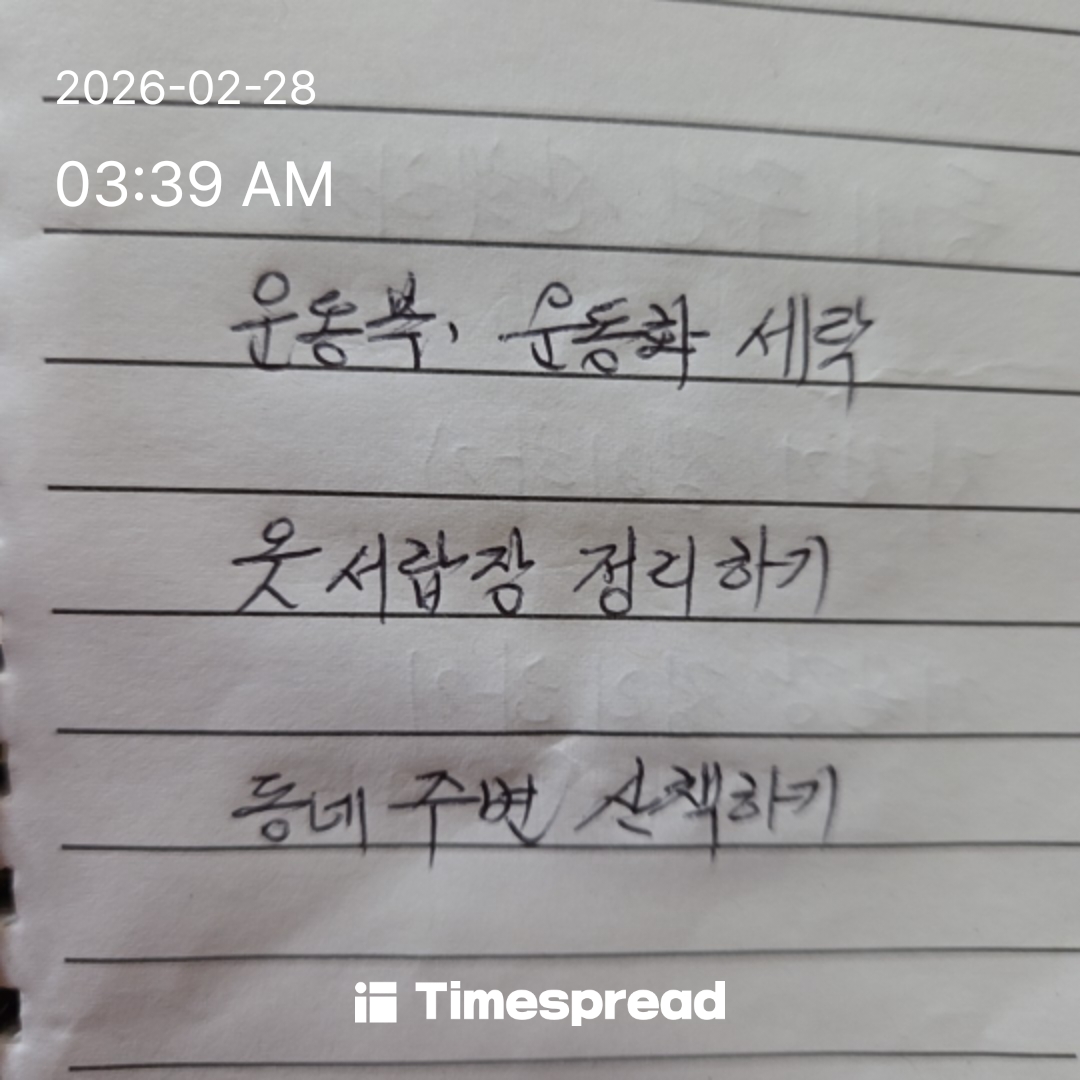 2026-02-28
03:39 AM
운동복, 운동화 세탁
옷 서랍장 정리하기
동네 주변 산책하기
Timespread